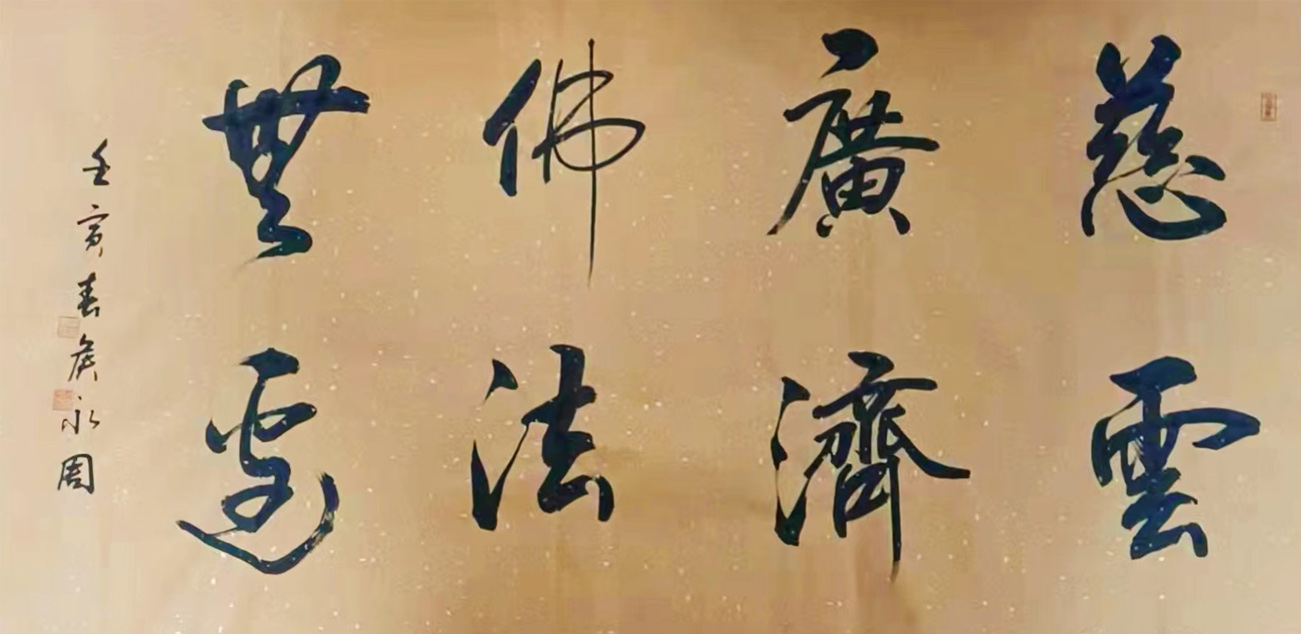 慈雲
廣濟
佛法
無邊
壬寅春侯永周